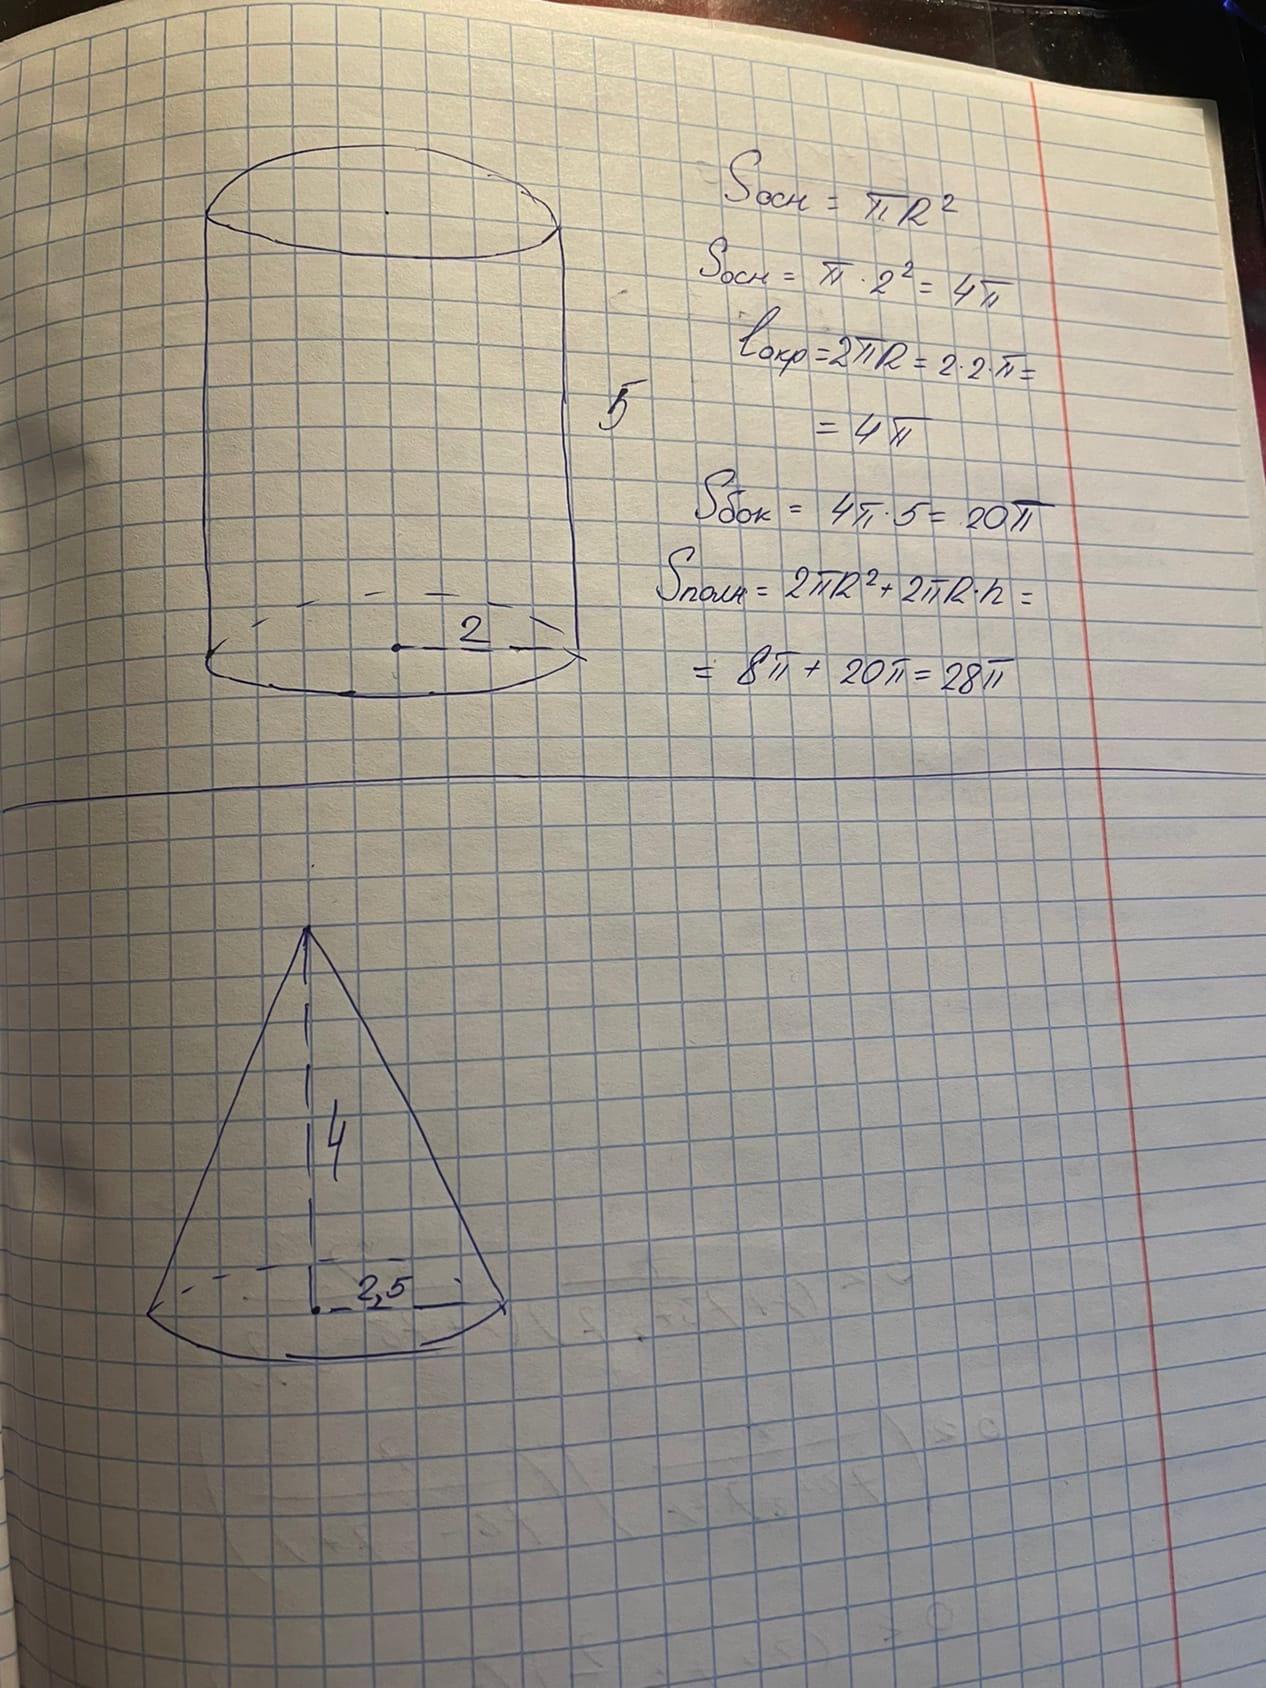 Sосн = πR²
Sосн = π · 2² = 4π
lокр = 2πR = 2·2·π =
= 4π
5
Sбок = 4π·5 = 20π
Sполн = 2πR² + 2πR·h =
2
= 8π + 20π = 28π
4
2,5